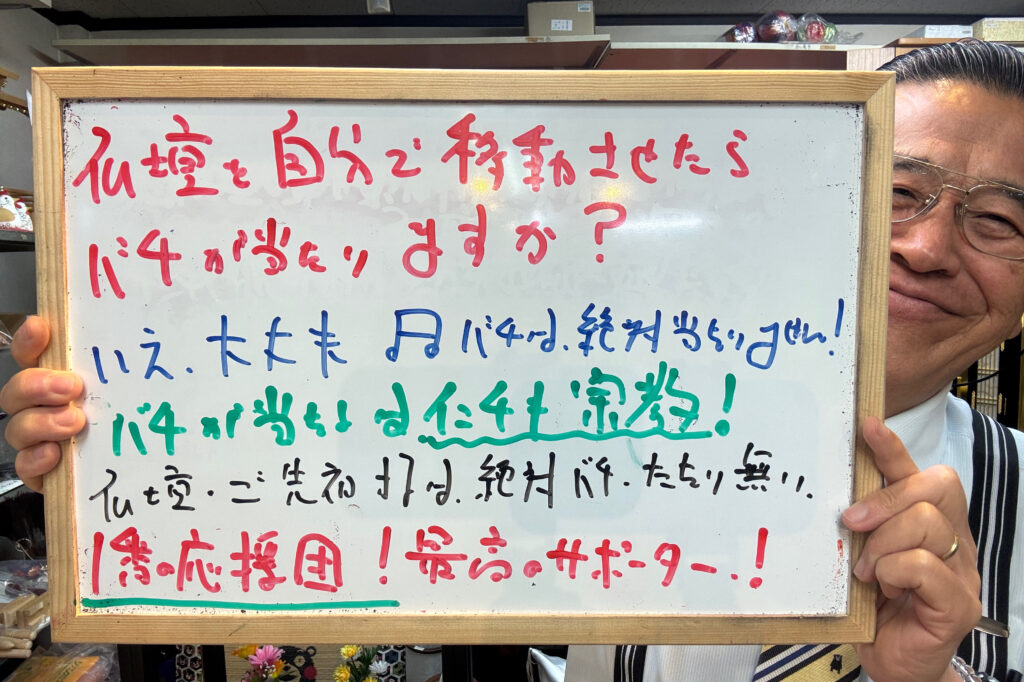 仏壇を自分で移動させたら
バチが当たりますか?
いえ、大丈夫 バチは、絶対当たりません!
バチが当たるは インチキ宗教!
仏壇・ご先祖様は、絶対バチ・たたり無い、
1番の応援団!最高のサポーター、!